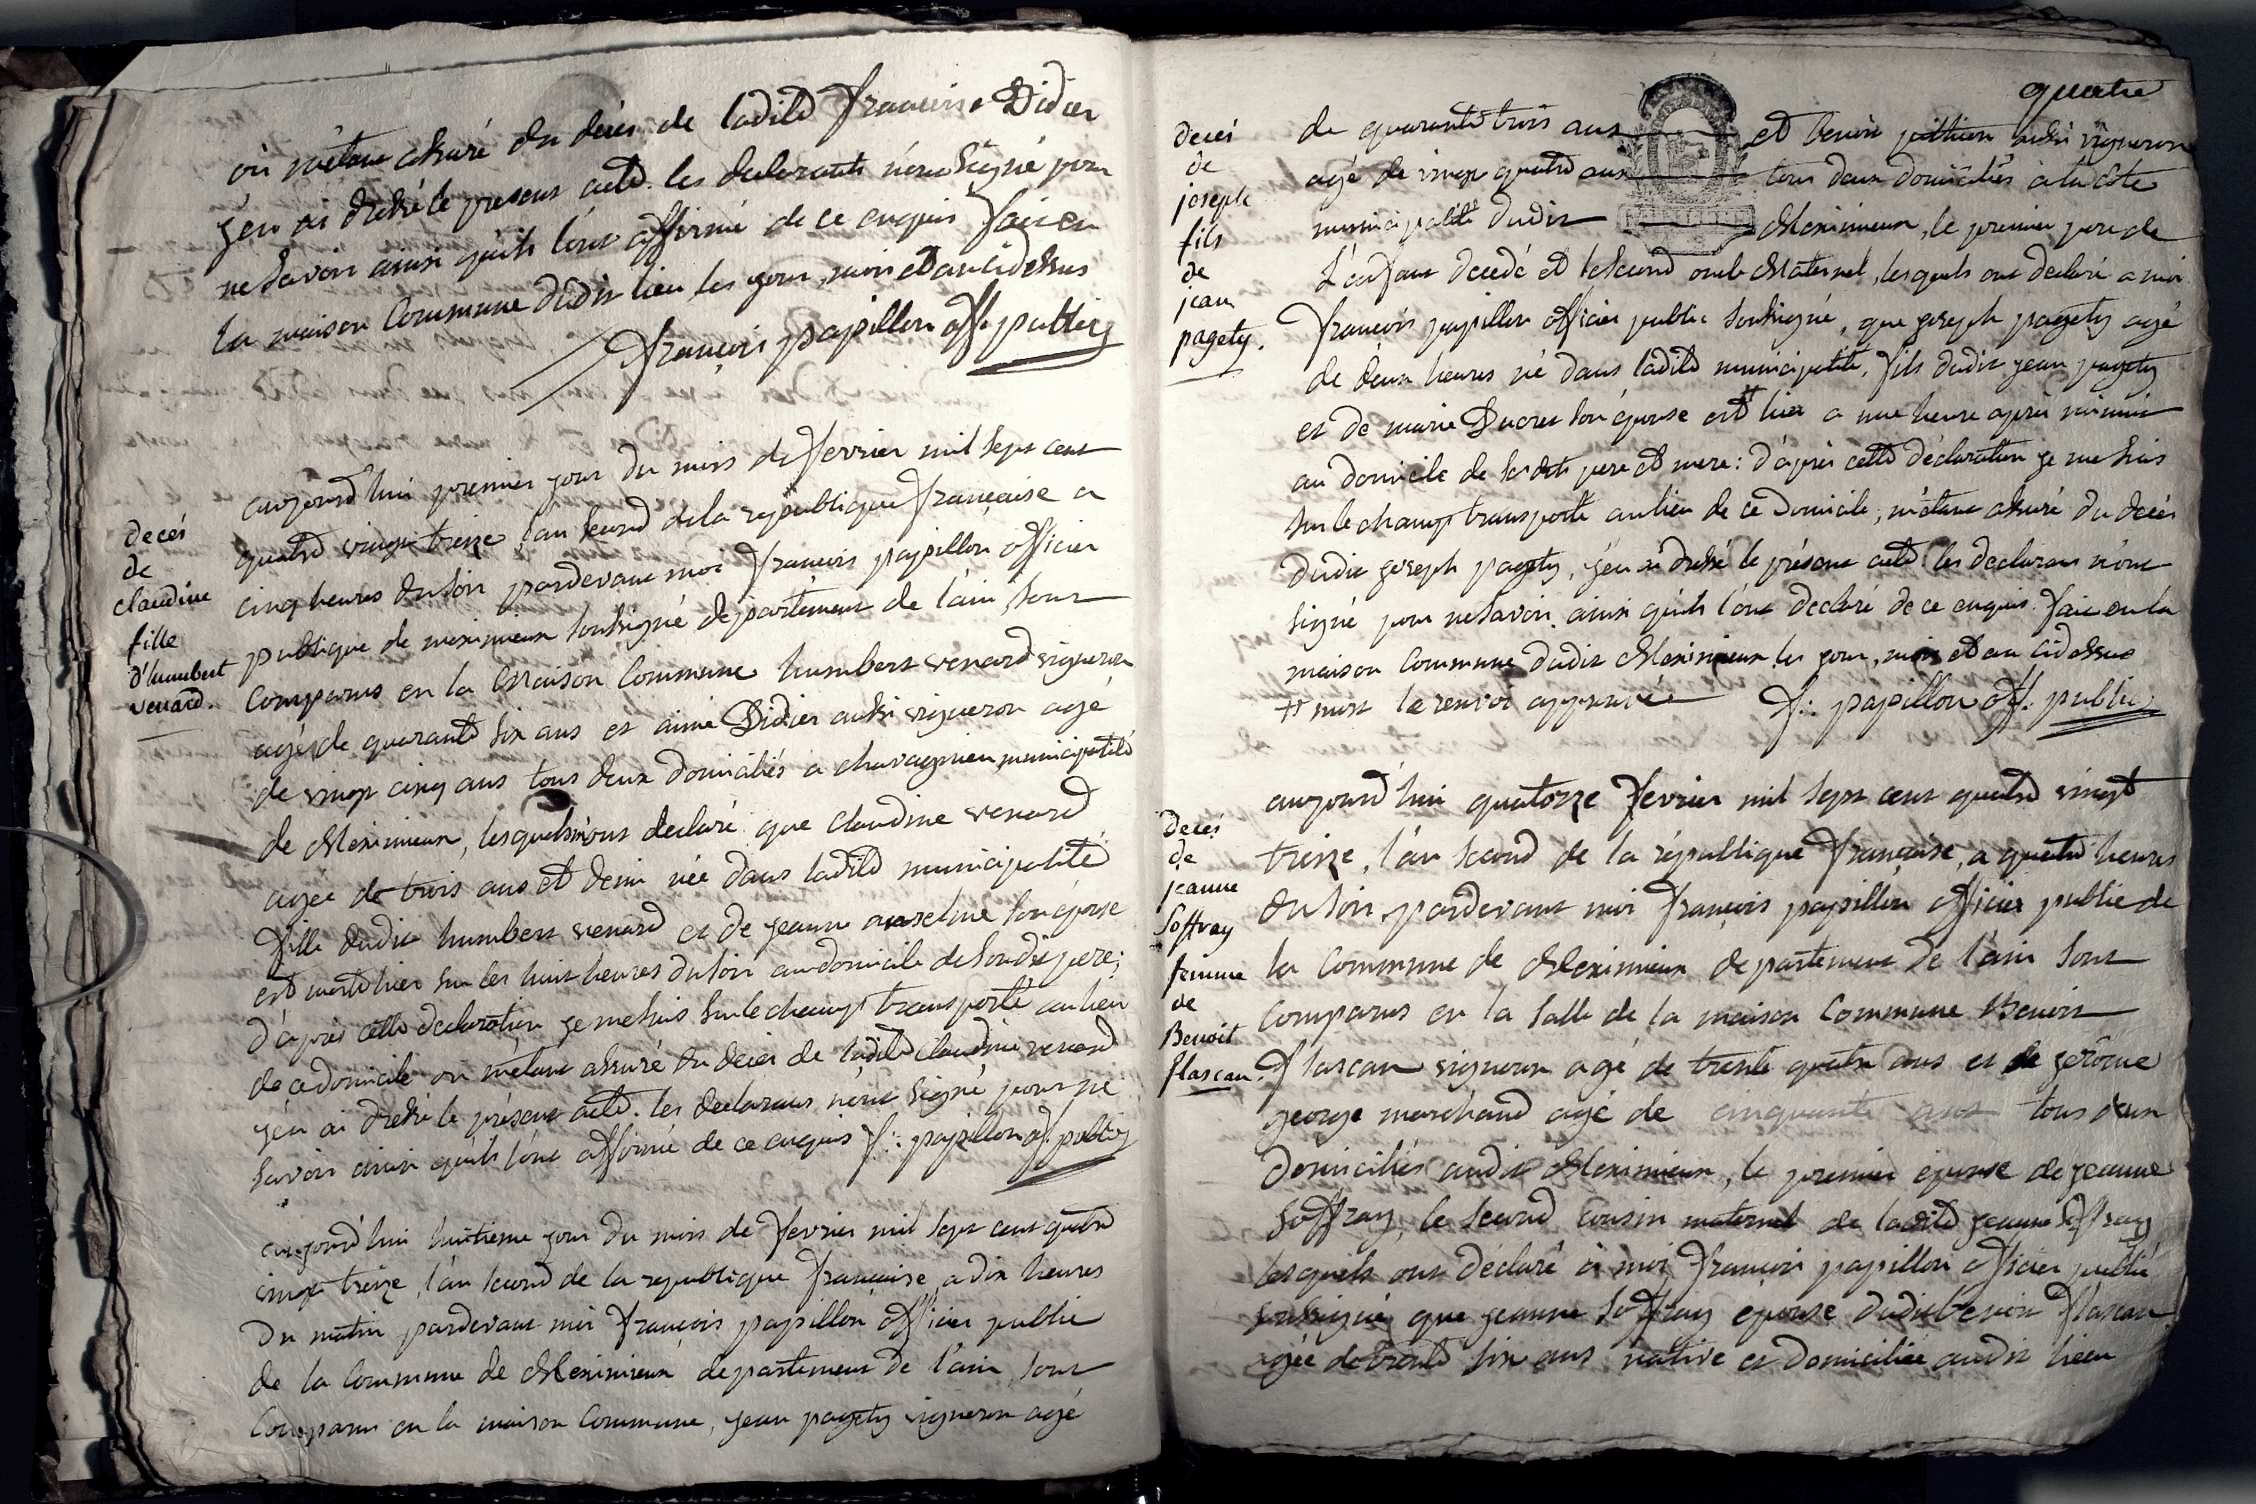 où m'étant assuré du décés de ladite françoise Didier
j'en ai dressé le present acte. les declarants n'ont signé pour
ne savoir ainsi qu'ils l'ont affirmé de ce enquis fait en
la maison Commune dudit lieu les jour, mois et an cidessus
françois papillon off. public
decés
de
claudine
fille
d'humbert
venard.
aujourd'hui premier jour du mois de fevrier mil sept cent
quatre vingt treize, l'an second de la republique française a
cinq heures du soir pardevant moi françois papillon officier
publique de meximieux soussigné département de l'ain, sont
comparus en la Maison Commune humbert venard vigneron
agé de quarante six ans et aimé Didier aussi vigneron agé
de vingt cinq ans tous deux domiciliés a chavagnieu municipalité
de Meximieux, lesquels m'ont declaré que claudine venard
agée de trois ans et demi née dans ladite municipalité
fille dudit humbert venard et de jeanne anselme son épouse
est morte hier sur les huit heures du soir au domicile de sondit pere;
d'après cette declaration je me suis sur le champ transporté au lieu
de ce domicile où m'étant assuré du décés de ladite Claudine venard
j'en ai dressé le présent acte. les declarants n'ont signé pour ne
savoir ainsi qu'ils l'ont affirmé de ce enquis f: papillon of. public
aujourd'hui huitieme jour du mois de fevrier mil sept cent quatre
vingt treize, l'an second de la republique française, a dix heures
du matin pardevant moi françois papillon officier public
de la Commune de Meximieux departement de l'ain, sont
Comparus en la maison Commune, jean pagety vigneron agé
quatre
decés
de
joseph
fils
de
jean
pagety.
de quarante trois ans et benoit aussi vigneron
agé de vingt quatre ans tous deux domiciliés à la côte
municipalité dudit Meximieux, le premier pere de
l'enfant decedé et le second oncle Maternel, lesquels ont declaré a moi
françois papillon officier public soussigné, que joseph pagety agé
de deux heures né dans ladite municipalité, fils dudit jean pagety
et de marie Ducret son épouse est # hier a une heure après minuit
au domicile de sesdits pere et mere: d'après cette déclaration je me suis
sur le champ transporté au lieu de ce domicile, m'étant assuré du décés
dudit joseph pagety, j'en ai dressé le présent acte les declarans n'ont
signé pour ne savoir ainsi qu'ils l'ont declaré de ce enquis. fait en la
maison Commune dudit Meximieux les jour, mois et an cidessus
# mort le renvoi approuvé f: papillon off: public
decés
de
jeanne
Soffray
femme
de
Benoit
flascan.
aujourd'hui quatorze fevrier mil sept cent quatre vingt
treize, l'an second de la république française, a quatre heures
du soir, pardevant moi françois papillon officier public de
la Commune de Meximieux departement de l'ain sont
Comparus en la salle de la maison Commune Benoit
flascan vigneron agé de trente quatre ans et de jerôme
george marchand agé de cinquante ans tous deux
domiciliés audit Meximieux, le premier epoux de jeanne
Soffray, le second cousin maternel de ladite jeanne Soffray
lesquels ont déclaré à moi françois papillon officier public
soussigné que jeanne Soffray épouse dudit benoit flascan
agée de trente six ans native et domiciliée audit lieu